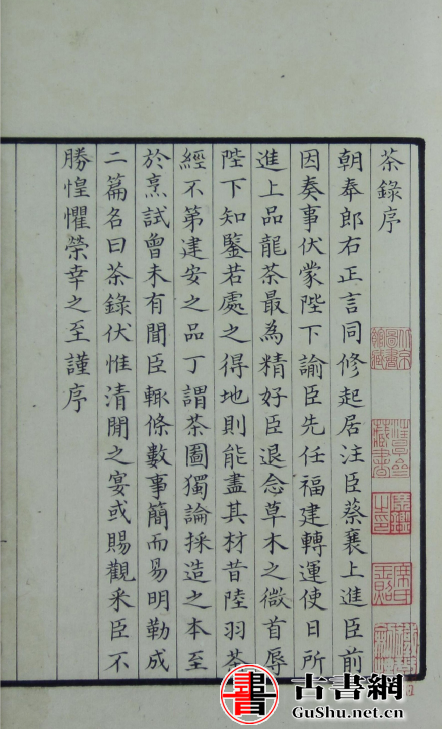 茶錄序
朝奉郎右正言同修起居注臣蔡襄上進臣前
因奏事伏蒙陛下諭臣先任福建轉運使日所
進上品龍茶最為精好臣退念草木之微首辱
陛下知鑒若處之得地則能盡其材昔陸羽茶
經不第建安之品丁謂茶圖獨論採造之本至
於烹試曾未有聞臣輒條數事簡而易明勒成
二篇名曰茶錄伏惟清閒之宴或賜觀采臣不
勝惶懼榮幸之至謹序
書 古書網
GuShu.net.cn